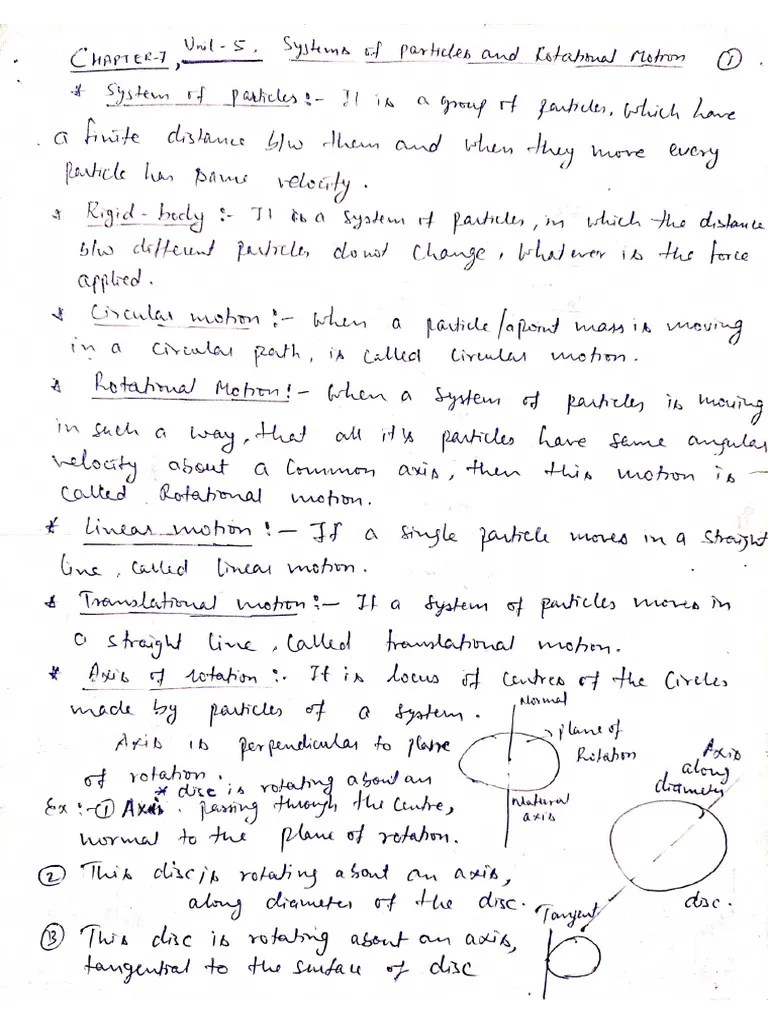 CHAPTER-7, Unit-5. Systems of particles and Rotational Motion ①
* System of particles:- It is a group of particles, which have
a finite distance b/w them and when they move every
particle has same velocity.
* Rigid-body:- It is a system of particles, in which the distance
b/w different particles do not change, whatever is the force
applied.
* Circular motion:- When a particle/a point mass is moving
in a circular path, is called circular motion.
* Rotational Motion:- When a system of particles is moving
in such a way, that all it's particles have same angular
velocity about a common axis, then this motion is
called Rotational motion.
* Linear motion:- If a single particle moves in a straight
line, called linear motion.
* Translational motion:- If a system of particles moves in
a straight line, called translational motion.
* Axis of rotation:- It is locus of centres of the circles
made by particles of a system.
Normal
Axis is perpendicular to plane
of rotation.
plane of
Rotation
Axis
along
diameter
* disc is rotating about an
Ex:- ① Axis passing through the centre,
normal to the plane of rotation.
Natural
axis
② This disc is rotating about an axis,
along diameter of the disc.
disc.
Tangent
③ This disc is rotating about an axis,
tangential to the surface of disc